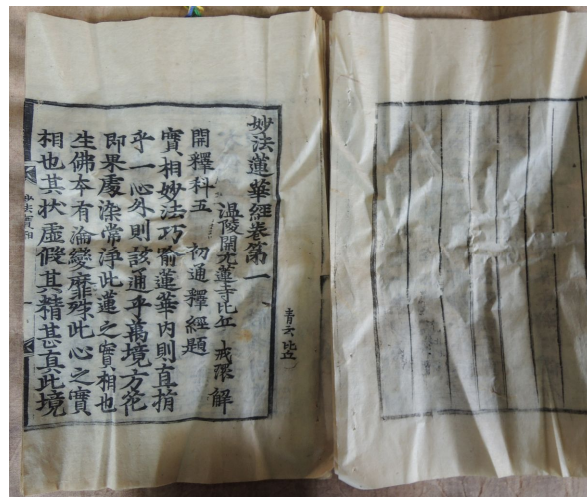 青云比丘
妙法蓮華經卷第一
温陵開元蓮寺比丘 戒環 解
開釋科五 初通釋經題
實相妙法巧喻蓮華内則直指
乎一心外則該通乎萬境方花
即果處染常淨此蓮之實相也
生佛本有淪變靡殊此心之實
相也其状虚假其精甚真此境